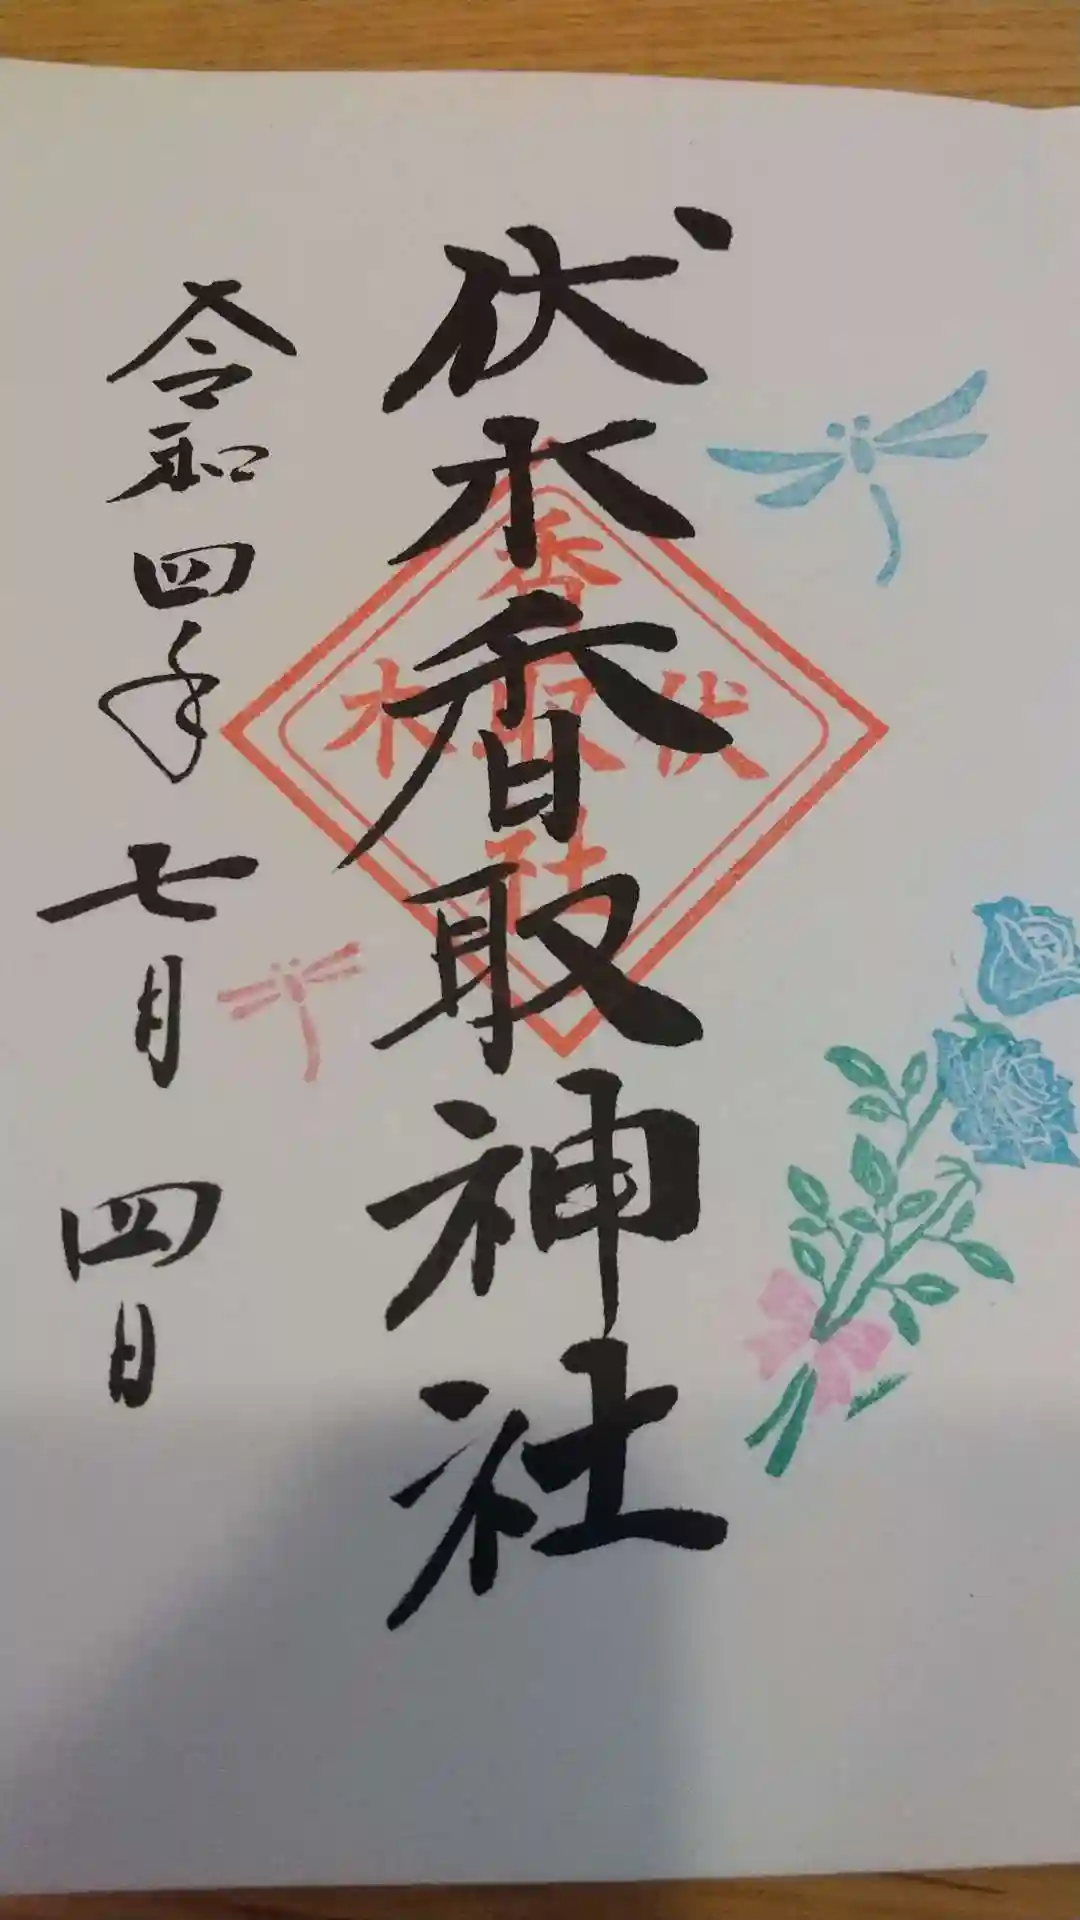 伏木香取神社
香
伏取木
社
令和四年七月四日